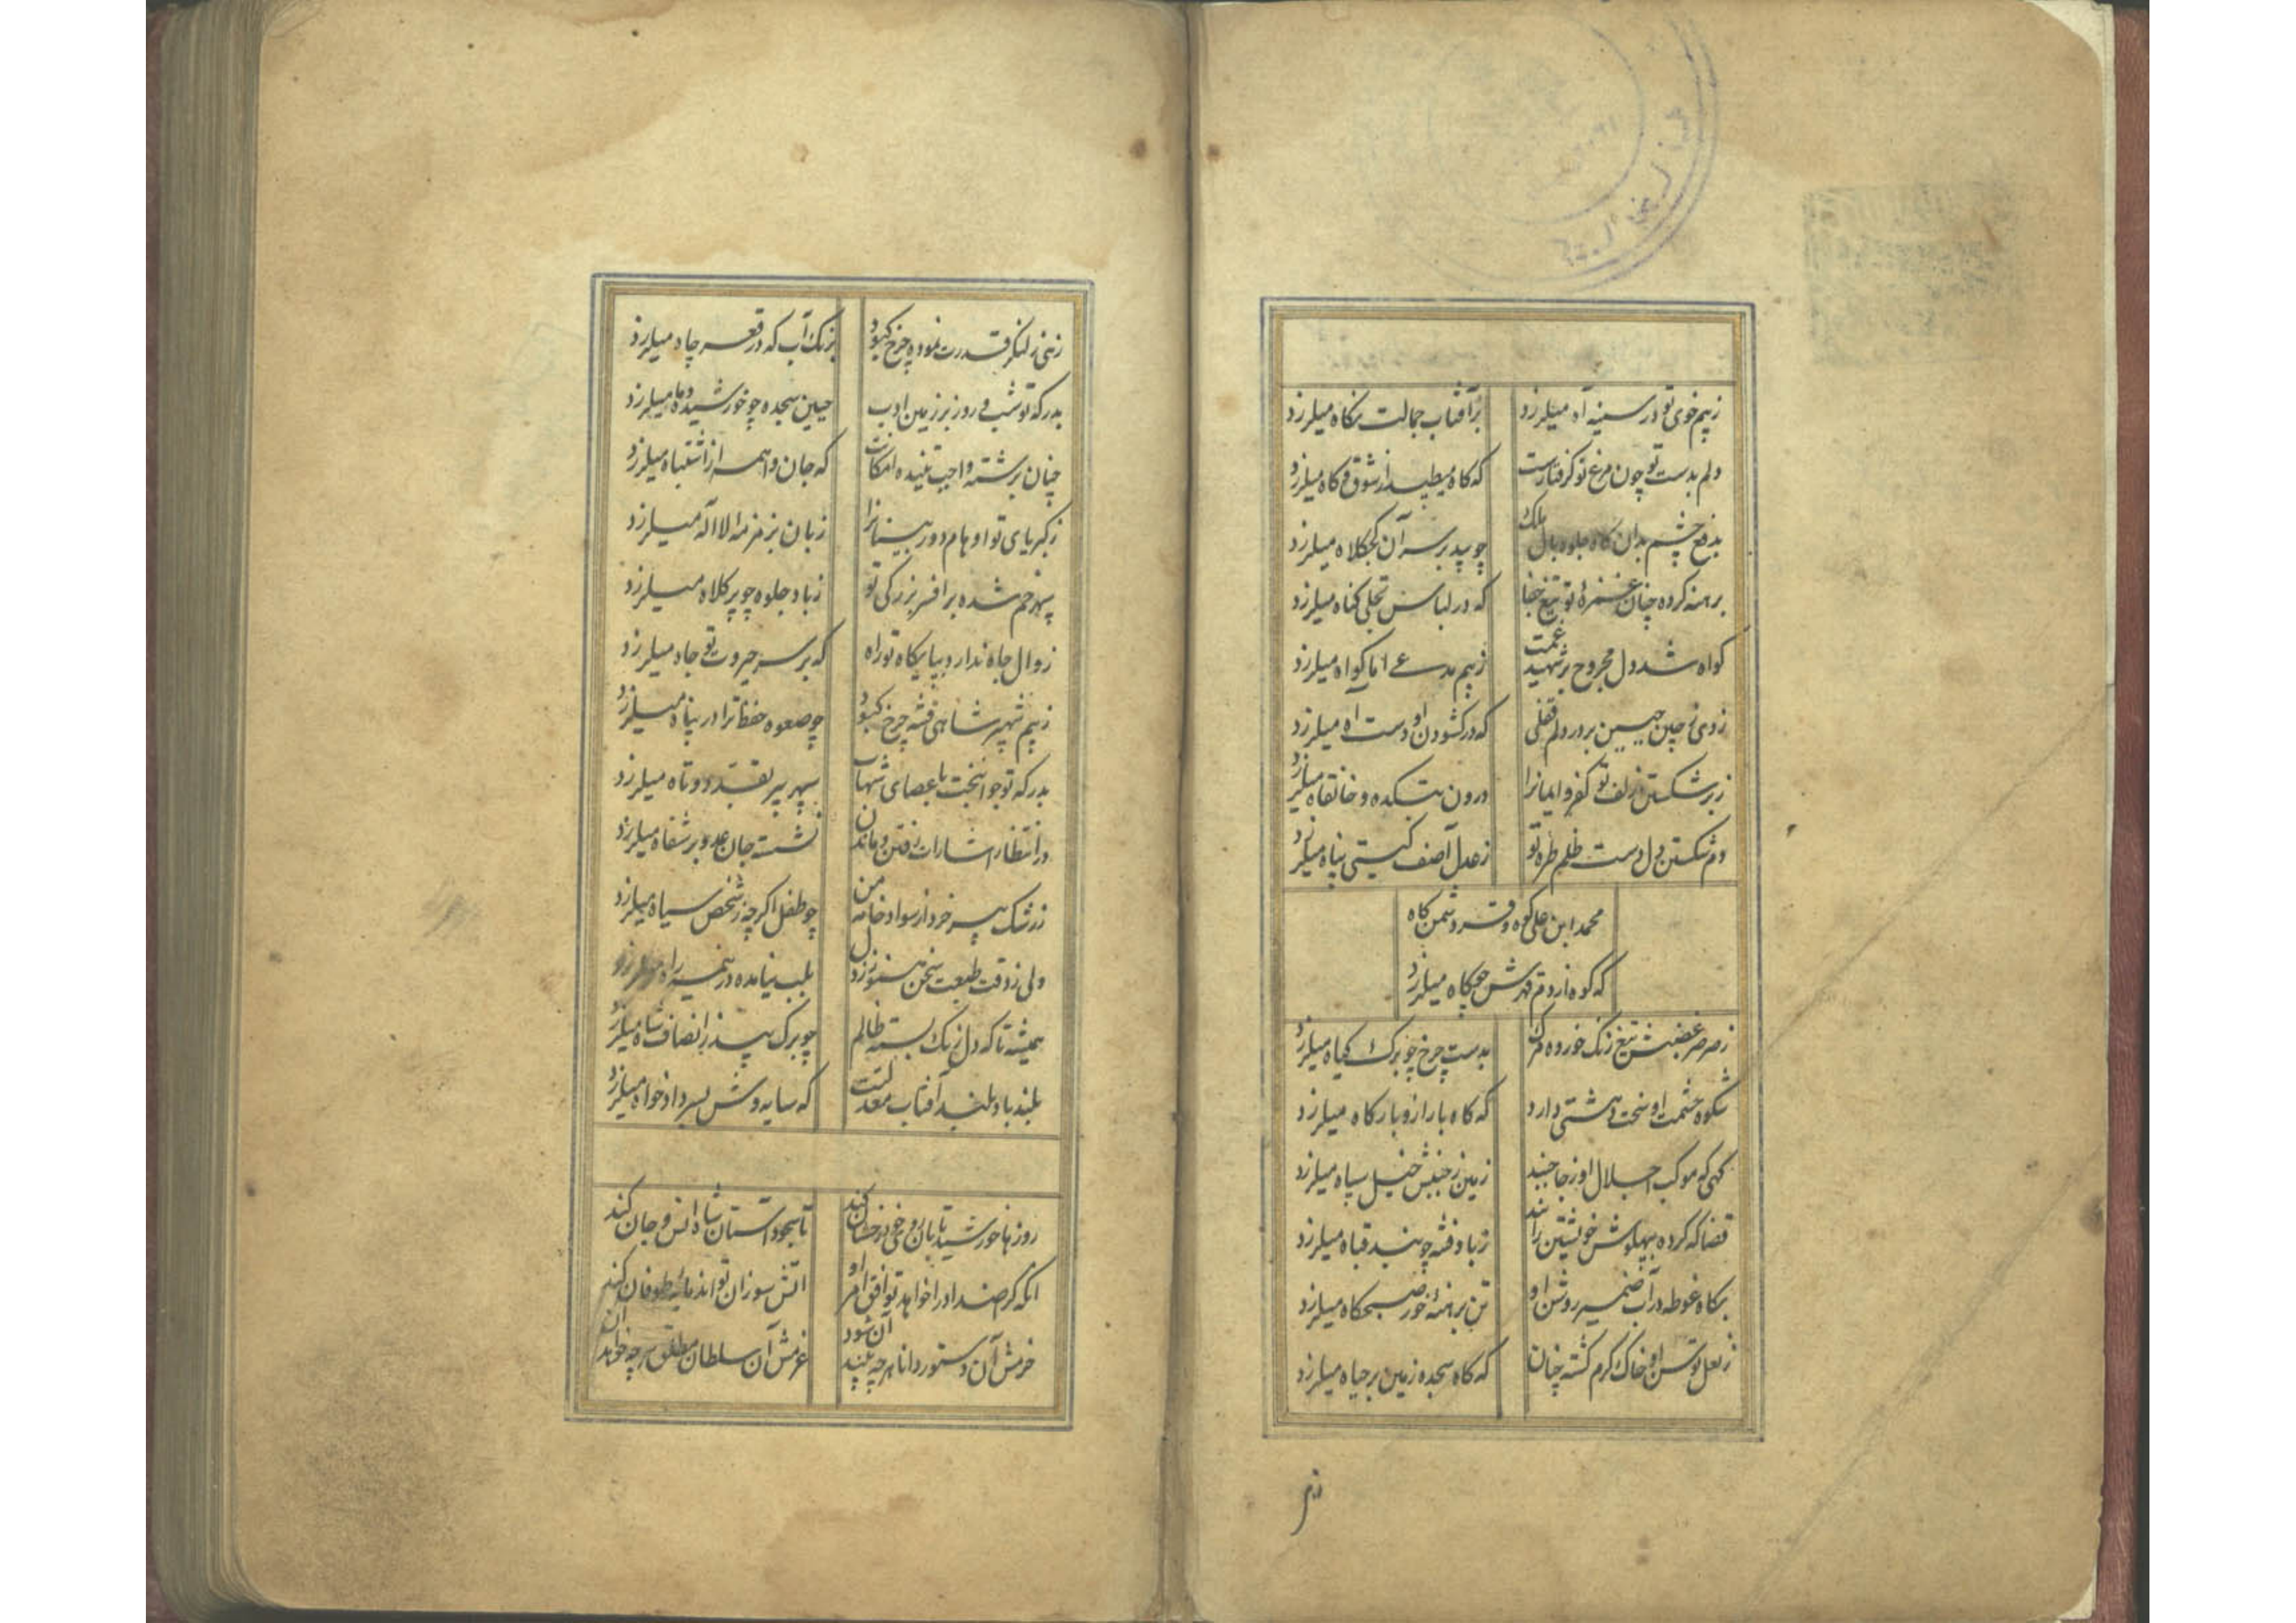 زبیم خوی تو در سینه آه میلرزد بر آفتاب جمالت نگاه میلرزد
دلم بدست تو چون مرغ نو گرفتارست که گاه میطپد از شوق و گاه میلرزد
بدفع چشم بدان گاه جلوه بال ملک چو پر بر سر آن کجکلاه میلرزد
برهنه کرده چنان غمزهٔ تو تیغ جفا که در لباس تجلی گناه میلرزد
گواه شد دل مجروح بر شهید غمت زبیم مدعی اما گواه میلرزد
زدی ز چین جبین بر در دلم قفلی که در گشودن او دست آه میلرزد
زبر شکستن زلف تو کفر و ایمانرا درون بتکده و خانقاه میلرزد
دم شکستن دل دست ظلم طرهٔ تو زعدل آصف گیتی پناه میلرزد
محمد ابن علی کوه وقر دشمن کاه
که کوه از دم قهرش چو کاه میلرزد
زصرصر غضبش تیغ زنگ خورده مرگ بدست چرخ چو برگ گیاه میلرزد
شکوه حشمت او سخت دهشتی دارد که گاه بار ازو بارگاه میلرزد
گهی که موکب اجلال او ز جا جنبد زمین ز جنبش خیل سپاه میلرزد
قضا که کرده بپهلوش خویشتن را بند زباد فتنه چو بند قباه میلرزد
بگاه غوطه در آب ضمیر روشن او تن برهنهٔ خور صبحگاه میلرزد
زنعل توسن او خاک گرم گشته چنان که گاه سجده زمین بر جباه میلرزد
زهی ز لنگر قدرت نموده چرخ کبود برنگ آب که در قعر چاه میلرزد
بدرگه تو شب و روز بر زمین ادب جبین سجده چو خورشید و ماه میلرزد
چنان برشته واجب تنیده امکانت که جان واهمه از اشتباه میلرزد
زکبریای تو اوهام دور بینانرا زبان بزمزمه لا اله میلرزد
سپهر خم شده بر افسر بزرگی تو زباد جلوه چو پر کلاه میلرزد
زوال جاه ندارد بپایگاه تو راه که بر سر جبروت تو جاه میلرزد
زبیم شهپر شاهین فتنه چرخ کبود چو صعوه حفظ ترا در پناه میلرزد
بدرگه تو جوانبخت با عصای شهاب سپهر پیر بقد دو تاه میلرزد
در انتظار اشارات رفتن و ماندن نشسته جان عدو بر شفاه میلرزد
زرشک پیر خرد از سواد خامه من چو طفل اگر چه ز شخص سیاه میلرزد
ولی ز دقت طبعت سخن هنوز ز دل بلب نیامده در نیمه راه میلرزد
همیشه تا که دل زنگ بسته ظالم چو برگ بید ز انصاف شاه میلرزد
بلند باد بلند آفتاب معدلتت که سایه وش بسر داد خواه میلرزد
روزها خورشید تابان روی خود رخشان کند تا سجود آستان شاه انس و جان کند
آنکه گر صد اد را خواهد توافق امر او آتش سوزان تواند مایهٔ طوفان کند
حزمش آن دستور دانا هر چه بیند آن شود عزمش آن سلطان مطلق هر چه خواهد آن کند
نهی